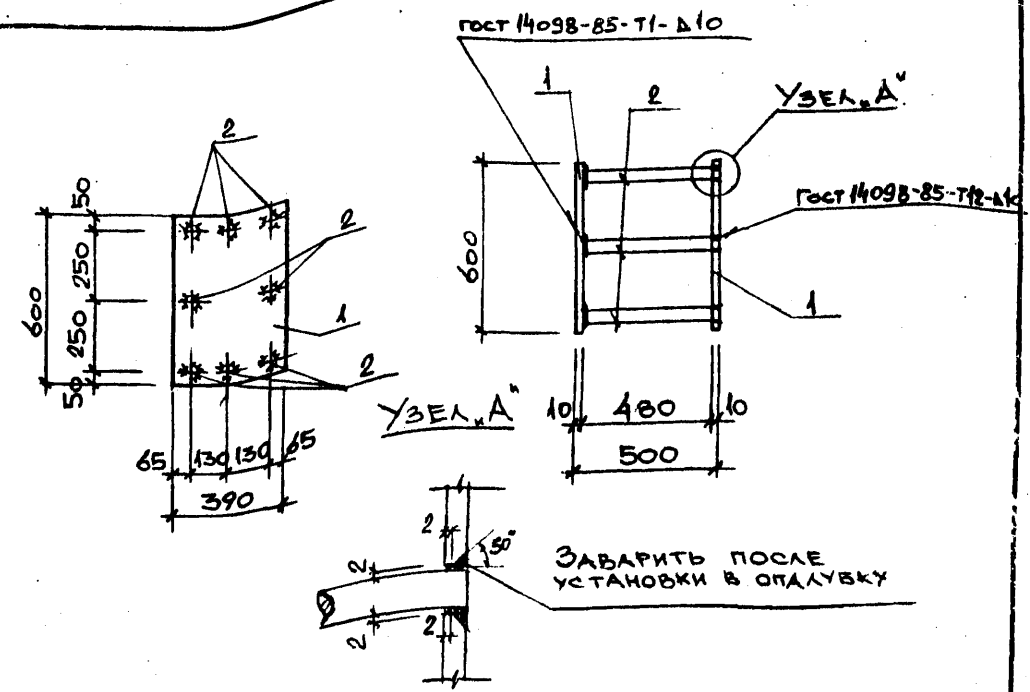 ГОСТ 14098-85-Т1-Δ10
1
2
УЗЕЛ „А"
ГОСТ 14098-85-Т12-Δ10
600
1
10
480
10
500
2
2
1
2
50
250
250
50
600
65
130
130
65
390
УЗЕЛ „А"
2
50°
2
2
2
ЗАВАРИТЬ ПОСЛЕ
УСТАНОВКИ В ОПАЛУБКУ